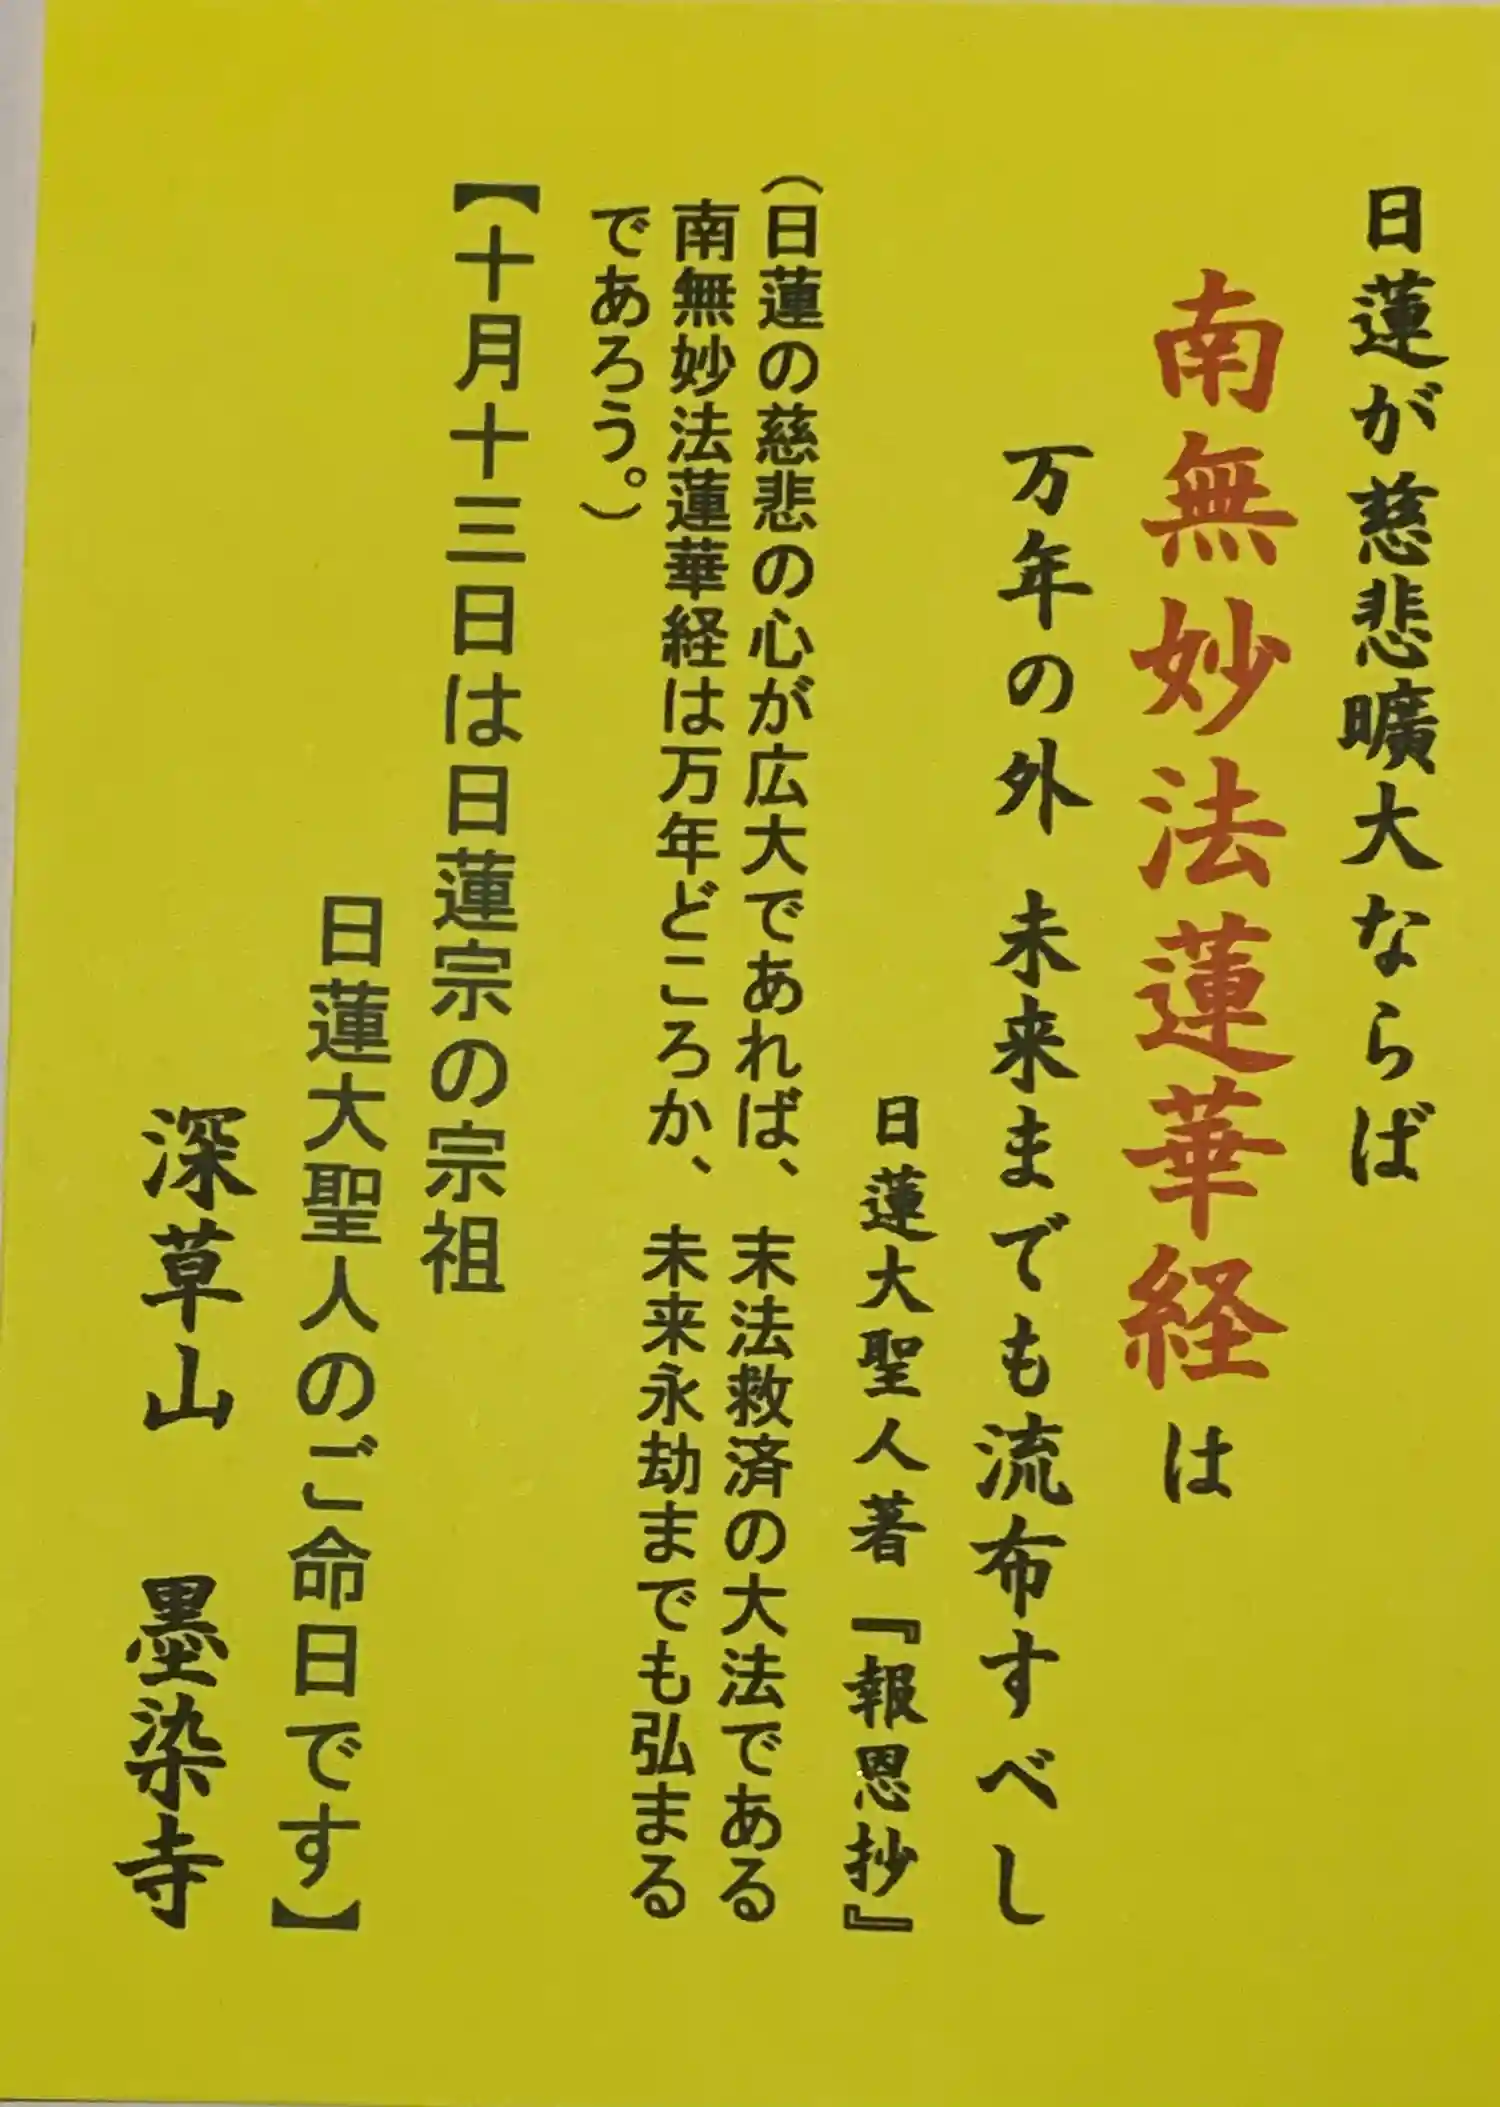 日蓮が慈悲曠大ならば
南無妙法蓮華経は
万年の外 未来までも流布すべし
日蓮大聖人著『報恩抄』
（日蓮の慈悲の心が広大であれば、末法救済の大法である
南無妙法蓮華経は万年どころか、未来永劫までも弘まる
であろう。）
【十月十三日は日蓮宗の宗祖
日蓮大聖人のご命日です】
深草山 墨染寺